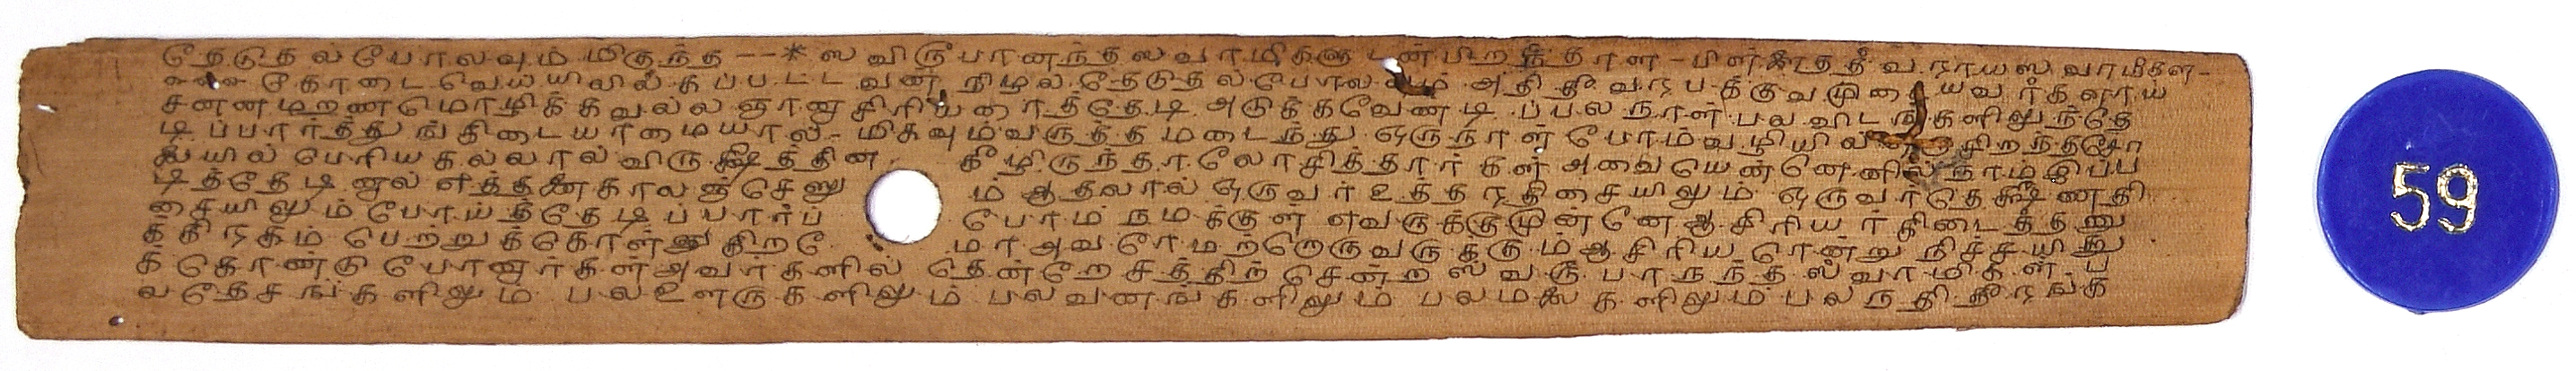 தேடுதல் போலவும் மிகுந்த --* ஸ்விரூபானந்தஸ்வாமிகளுடன் பிறந்தாள - பின்
கோடை வெய்யிலில் கப்பட்டவன் நிழல் தேடுதல்போலவும் அதி தீவரபக்குவமுடையவர்களாய்
சனனமறணமொழிக்கவல்ல ஞானாசிரியரைத்தேடி அடுக்கவேண்டிப்பலநாள் பலவிடங்களிலுந்தே
டிப்பார்த்துங்கிடையாமையால் - மிகவும்வருத்தமடைந்து ஒருநாள் போம்வழியில் சிறந்தசோ
லையில் பெரியகல்லால்விருக்ஷத்தின கீழிருந்தாலோசித்தார்கள் அவையென்னெனில் நாம்இப்ப
டித்தேடினால் எத்தனைகாலஞ்செனு ம் ஆதலால் ஒருவர் உத்தரதிசையிலும் ஒருவர்தெக்ஷிணதி
சையிலும்போய்த்தேடிப்பார்ப் போம் நமக்குள் எவருக்குமுன்னே ஆசிரியர்கிடைத்தனு
க்கிரகம் பெற்றுக்கொள்ளுகிறபே மா அவரோமற்றெருவருக்கும்ஆசிரியரென்று நிச்சயித்து
க்கொண்டு போனார்கள்அவர்களில் தென்றேசத்திற்சென்ற ஸ்வரூபாநந்தஸ்வாமிகள் ப
லதேசங்களிலும் பலஊளருகளிலும் பலவனங்களிலும் பலமலைகளிலும்பலநதிதீரங்க
59